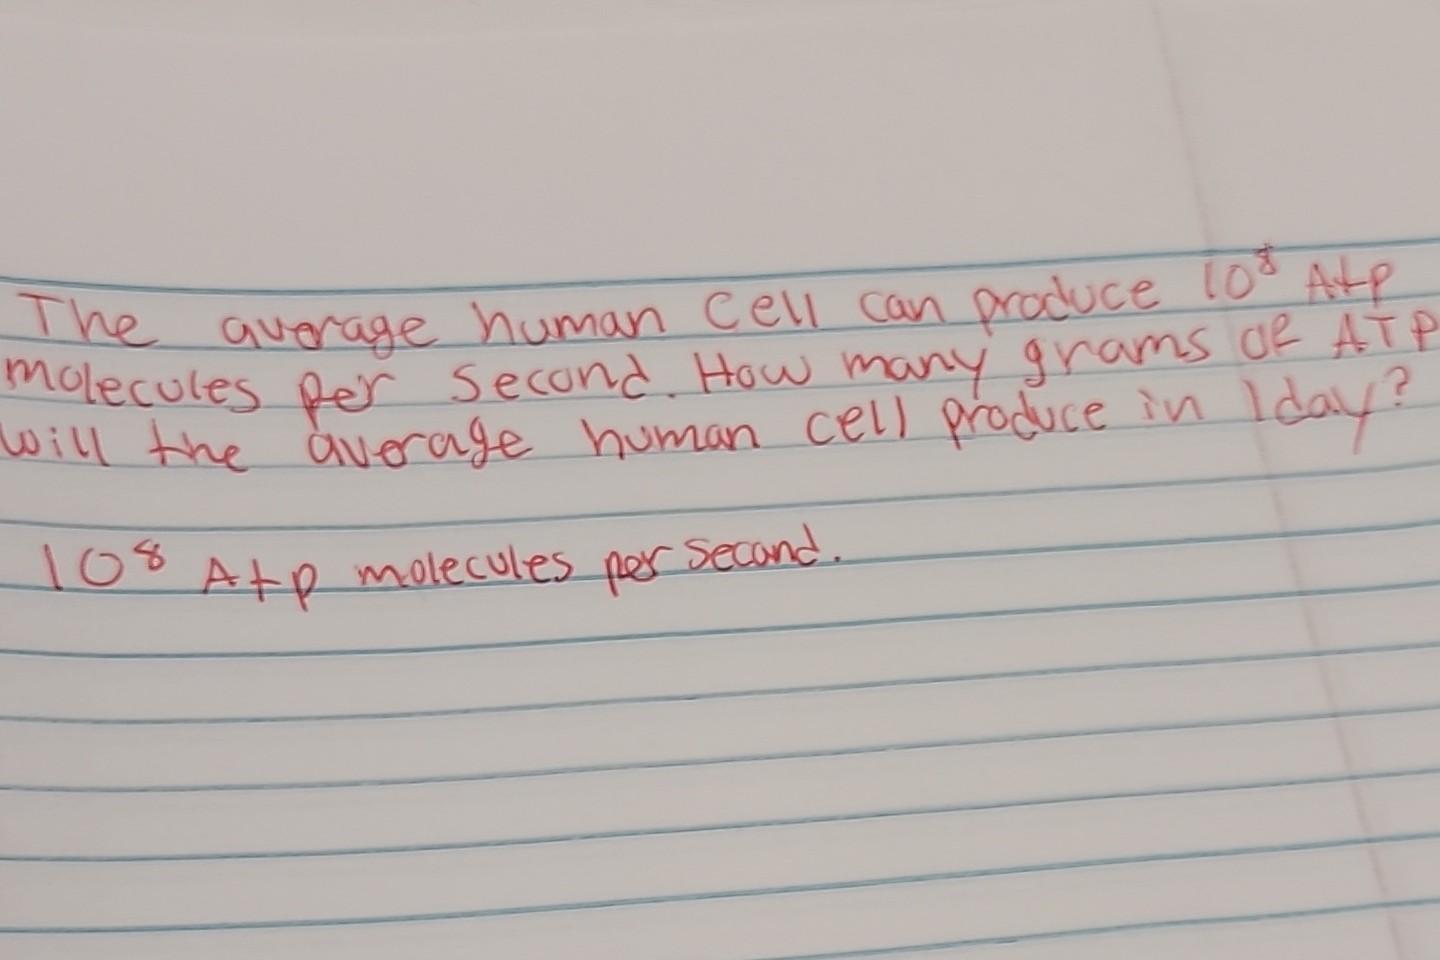 The average human cell can produce 10⁸ Atp
molecules per second. How many grams of ATP
will the average human cell produce in 1day?
10⁸ Atp molecules per second.